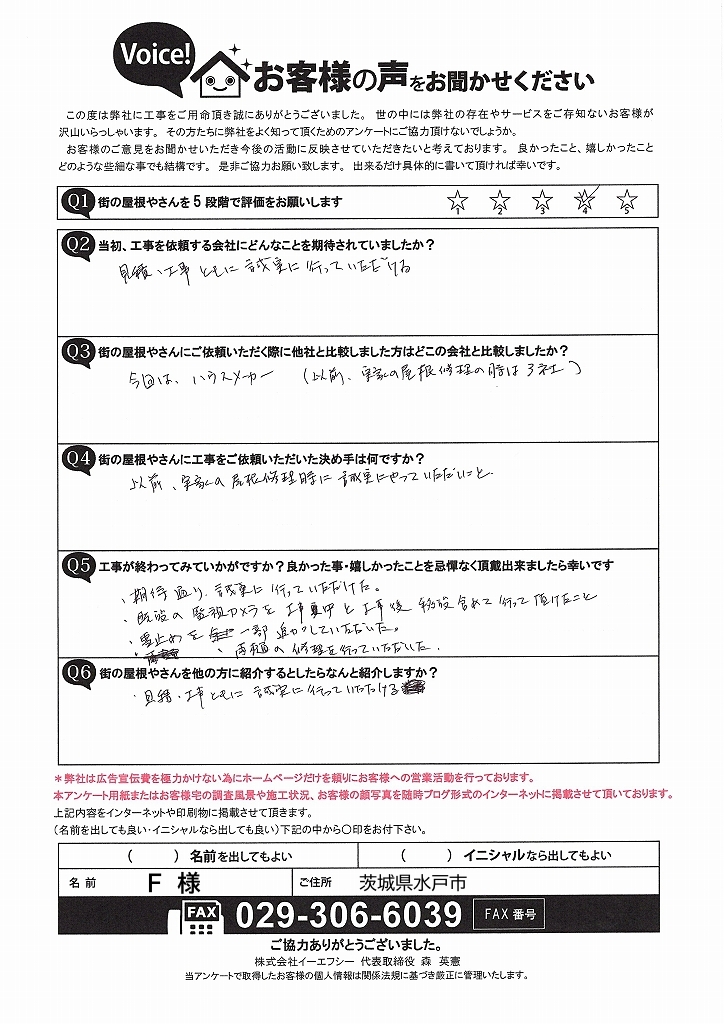 Voice!
お客様の声をお聞かせください
この度は弊社に工事をご用命頂き誠にありがとうございました。 世の中には弊社の存在やサービスをご存知ないお客様が
沢山いらっしゃいます。 その方たちに弊社をよく知って頂くためのアンケートにご協力頂けないでしょうか。
お客様のご意見をお聞かせいただき今後の活動に反映させていただきたいと考えております。 良かったこと、嬉しかったこと
どのような些細な事でも結構です。 是非ご協力お願い致します。 出来るだけ具体的に書いて頂ければ幸いです。
Q1 街の屋根やさんを5段階で評価をお願いします 1 2 3 4 5
Q2 当初、工事を依頼する会社にどんなことを期待されていましたか？
見積、工事ともに誠実に行っていただける
Q3 街の屋根やさんにご依頼いただく際に他社と比較しました方はどこの会社と比較しましたか？
今回は、ハウスメーカー （以前、実家の屋根修理の時は3社）
Q4 街の屋根やさんに工事をご依頼いただいた決め手は何ですか？
以前、実家の屋根修理時に誠実にやっていただいこと
Q5 工事が終わってみていかがですか？良かった事・嬉しかったことを忌憚なく頂戴出来ましたら幸いです
・期待通り、誠実に行っていただけた。
・既設の監視カメラを工事中と工事後移設含めて行って頂けたこと
・雪止めを一部追加していただいた。
・雨樋の修理を行っていただいた。
Q6 街の屋根やさんを他の方に紹介するとしたらなんと紹介しますか？
・見積・工事ともに誠実に行っていただける
＊弊社は広告宣伝費を極力かけない為にホームページだけを頼りにお客様への営業活動を行っております。
本アンケート用紙またはお客様宅の調査風景や施工状況、お客様の顔写真を随時ブログ形式のインターネットに掲載させて頂いております。
上記内容をインターネットや印刷物に掲載させて頂きます。
（名前を出しても良い・イニシャルなら出しても良い）下記の中から〇印をお付下さい。
（ ）名前を出してもよい （ ）イニシャルなら出してもよい
名前 F 様 ご住所 茨城県水戸市
FAX 029-306-6039 FAX 番号
ご協力ありがとうございました。
株式会社イーエフシー 代表取締役 森 英憲
当アンケートで取得したお客様の個人情報は関係法規に基づき厳正に管理いたします。